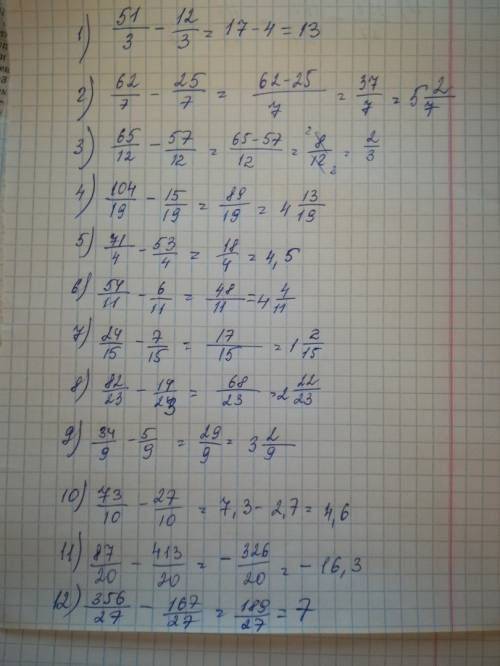 1) 51/3 - 12/3 = 17 - 4 = 13
2) 62/7 - 25/7 = 62-25/7 = 37/7 = 5 2/7
3) 65/12 - 57/12 = 65-57/12 = 8/12 = 2/3
4) 104/19 - 15/19 = 89/19 = 4 13/19
5) 71/4 - 53/4 = 18/4 = 4,5
6) 54/11 - 6/11 = 48/11 = 4 4/11
7) 24/15 - 7/15 = 17/15 = 1 2/15
8) 82/23 - 14/23 = 68/23 = 2 22/23
9) 34/9 - 5/9 = 29/9 = 3 2/9
10) 73/10 - 27/10 = 7,3 - 2,7 = 4,6
11) 87/20 - 413/20 = - 326/20 = - 16,3
12) 356/27 - 167/27 = 189/27 = 7